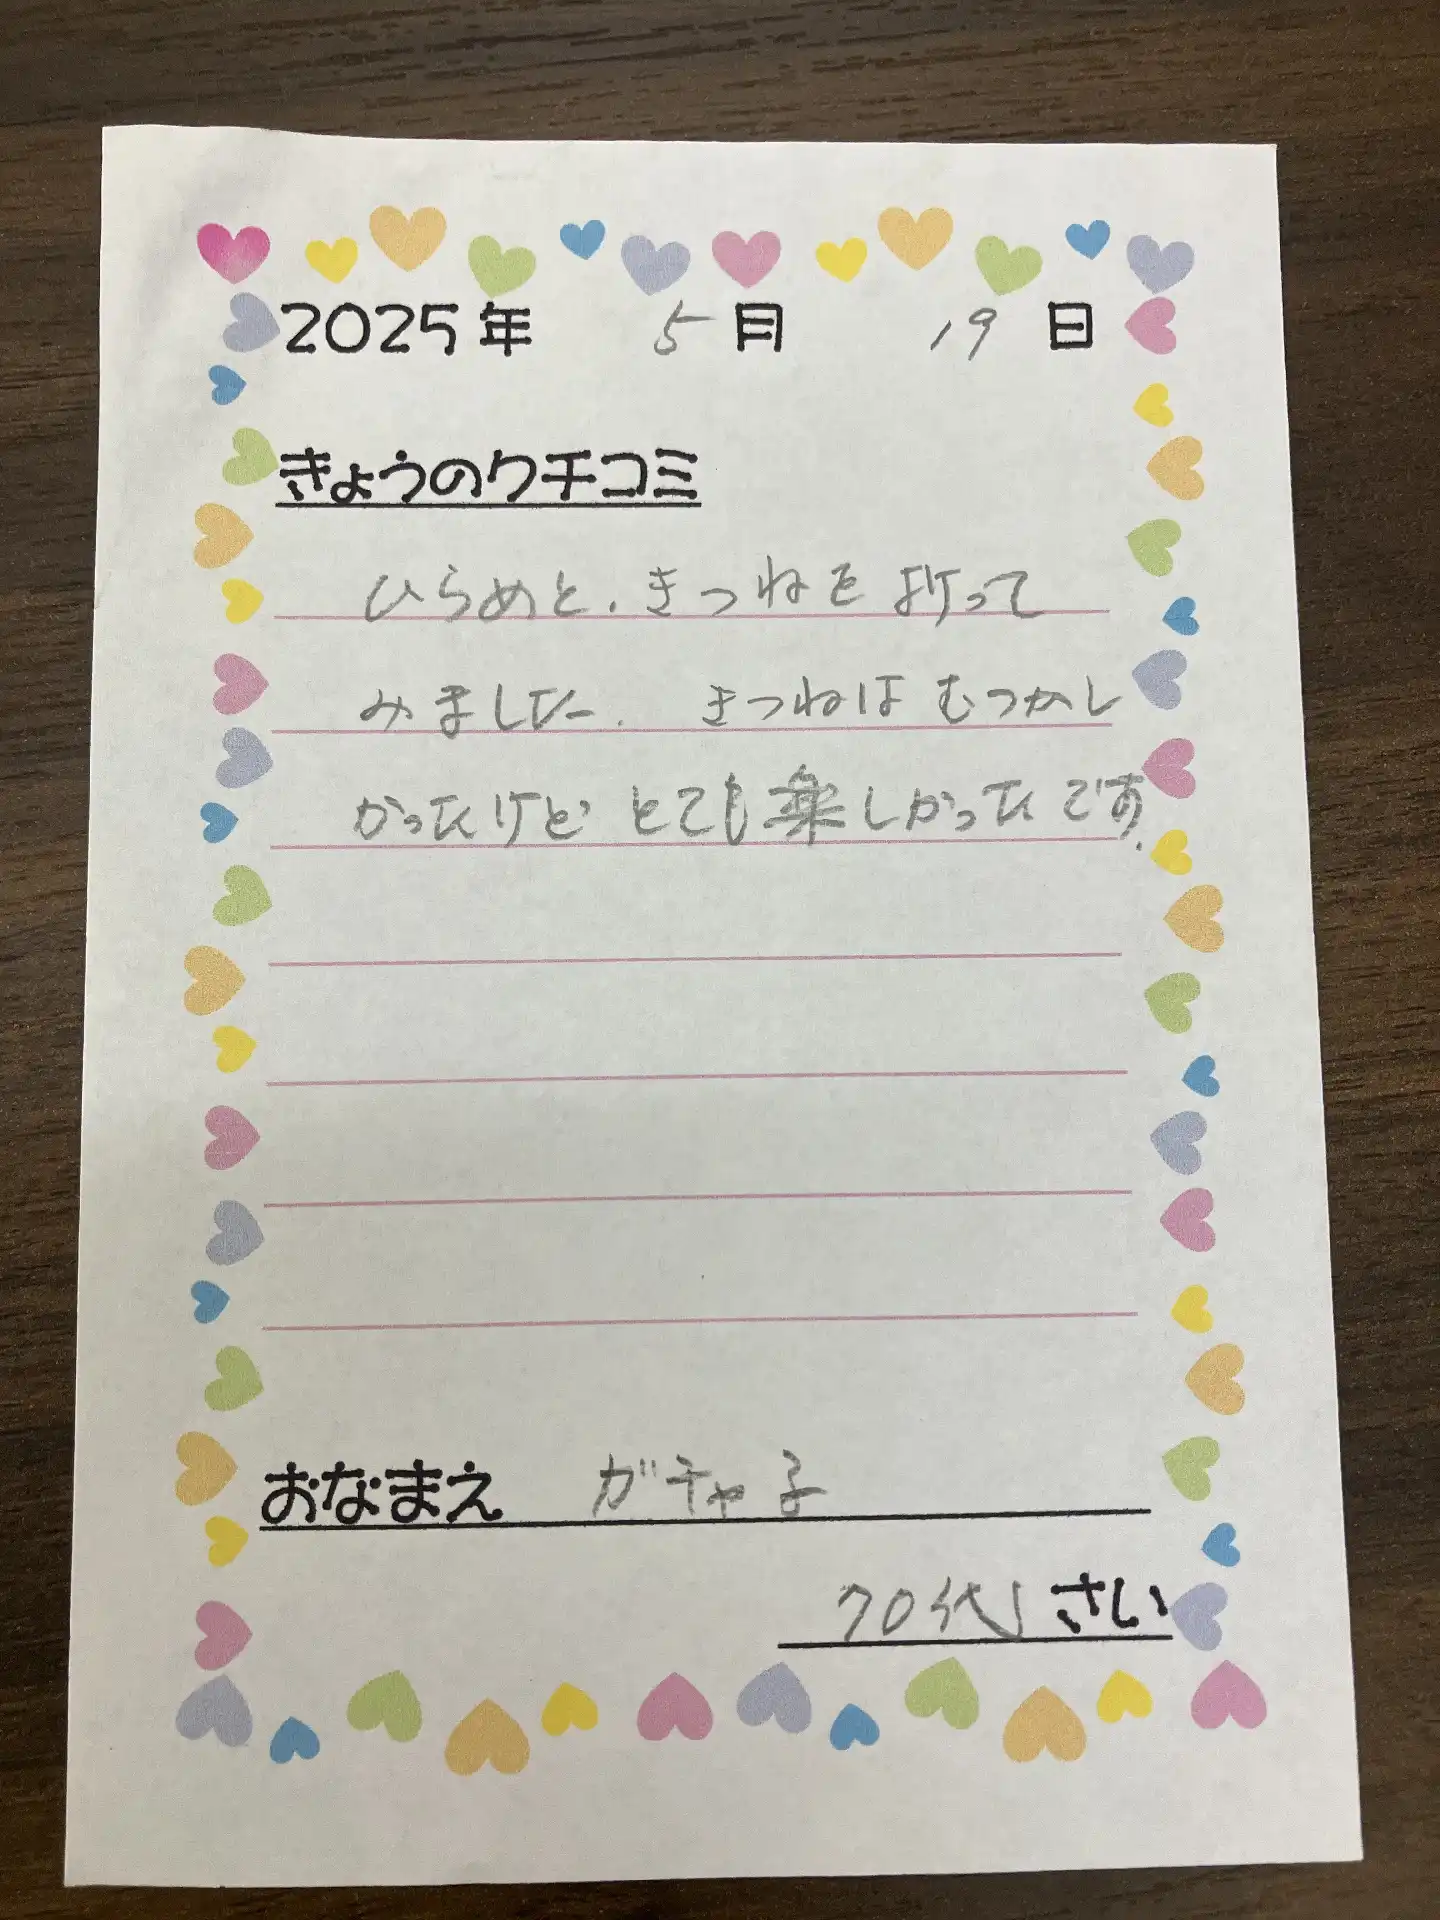 2025年 5月 19日
きょうのクチコミ
ひらめと、きつねを折って
みました。 きつねはむつかし
かったけど とても楽しかったです。
おなまえ ガチャ子
70代 さい